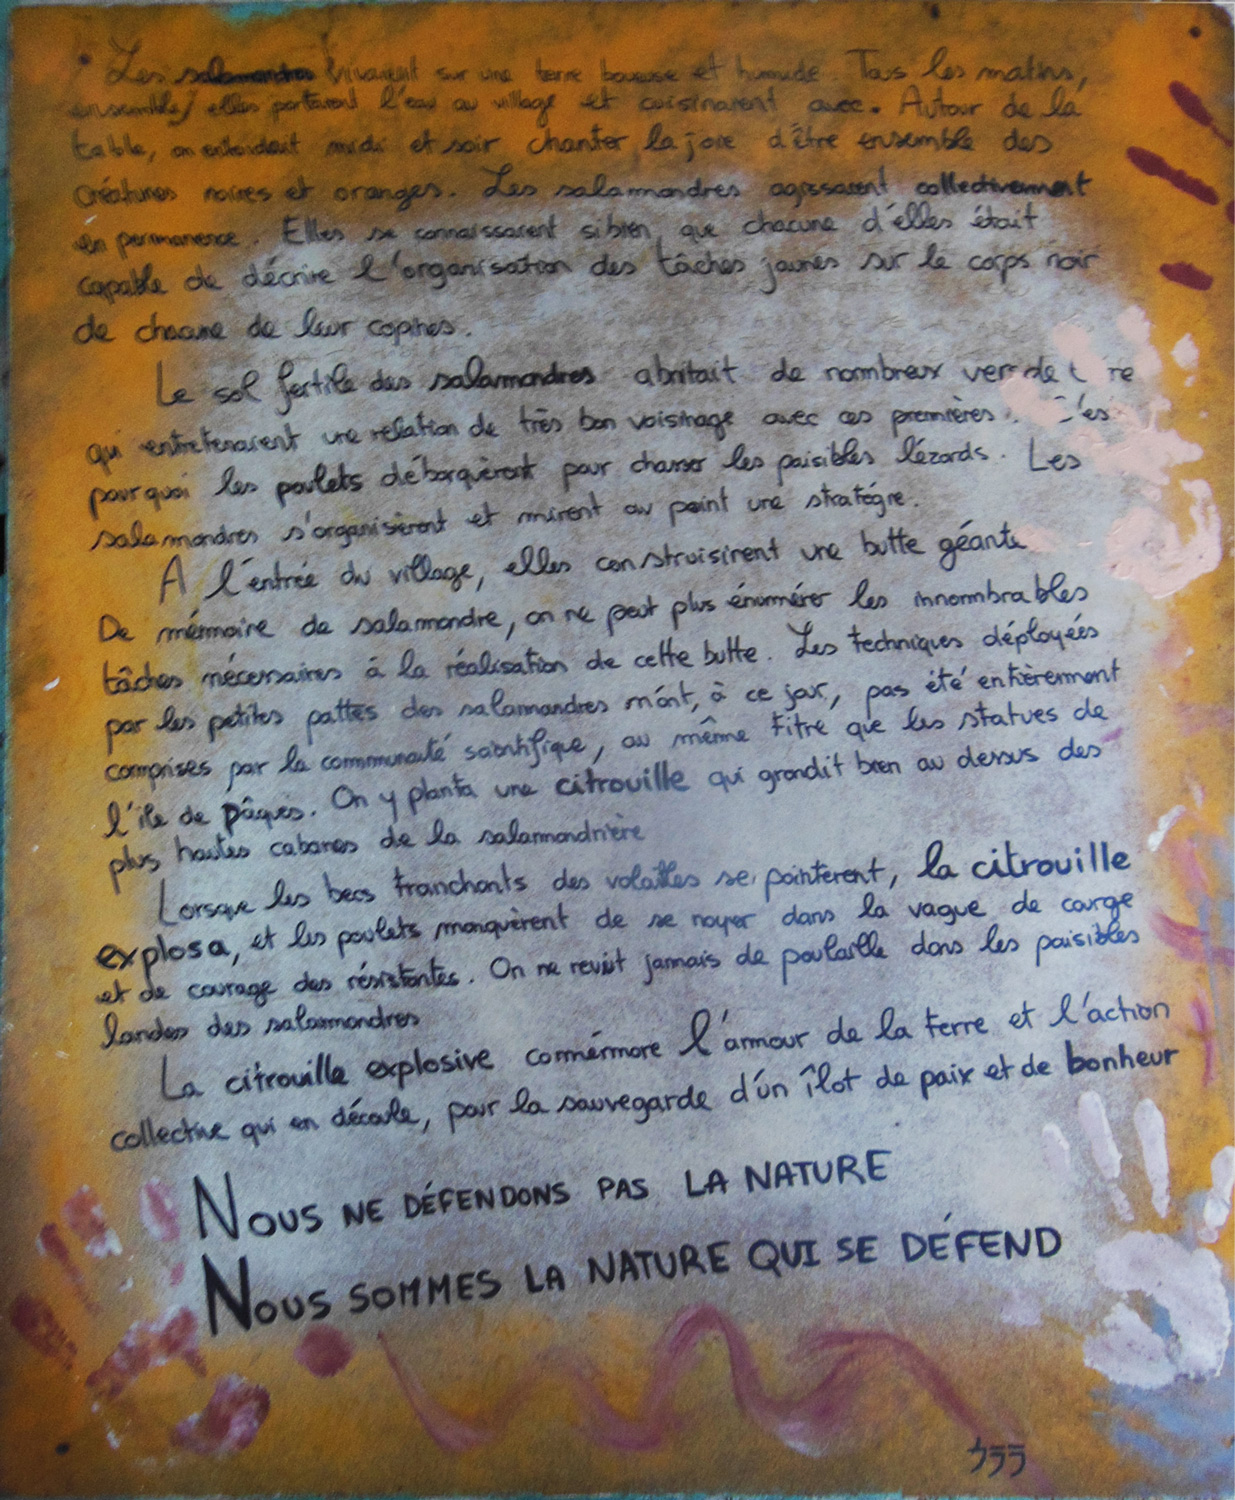 Les salamandres vivaient sur une terre boueuse et humide. Tous les matins,
ensemble, elles portaient l'eau au village et cuisinaient avec. Autour de la
table, on entendait midi et soir chanter la joie d'être ensemble des
créatures noires et oranges. Les salamandres agissaient collectivement
en permanence. Elles se connaissaient si bien que chacune d'elles était
capable de décrire l'organisation des tâches jaunes sur le corps noir
de chacune de leur copines.
Le sol fertile des salamandres abritait de nombreux ver de t re
qui entretenaient une relation de très bon voisinage avec ces premières. C'es
pourquoi les poulets débarquèrent pour chasser les paisibles lézards. Les
salamandres s'organisèrent et mirent au point une stratégie.
A l'entrée du village, elles construisirent une butte géante
De mémoire de salamandre, on ne peut plus énumérer les innombrables
tâches nécessaires à la réalisation de cette butte. Les techniques déployées
par les petites pattes des salamandres n'ont, à ce jour, pas été entièrement
comprises par la communauté scientifique, au même titre que les statues de
l'île de pâques. On y planta une citrouille qui grandit bien au dessus des
plus hautes cabanes de la salamandrière
Lorsque les becs tranchants des volailles se pointèrent, la citrouille
explosa, et les poulets manquèrent de se noyer dans la vague de courge
et de courage des résistantes. On ne revit jamais de poulaille dans les paisibles
landes des salamandres
La citrouille explosive commémore l'amour de la terre et l'action
collective qui en découle, pour la sauvegarde d'un îlot de paix et de bonheur
NOUS NE DÉFENDONS PAS LA NATURE
NOUS SOMMES LA NATURE QUI SE DÉFEND